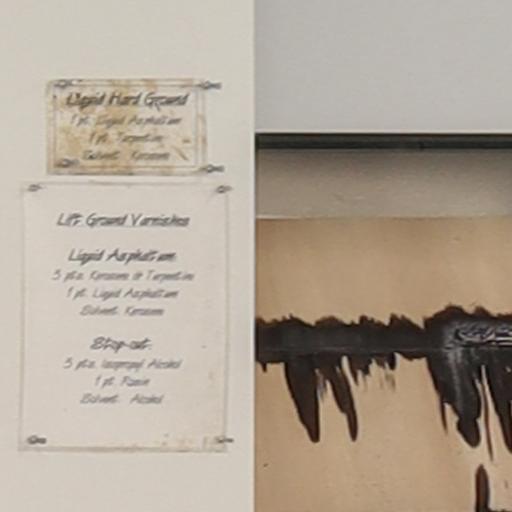 Liquid Hard Ground
1 pt. Liquid Asphaltum
1 pt. Turpentine
Solvent: Kerosene
Lift Ground Varnishes
Liquid Asphaltum
3 pts. Kerosene or Turpentine
1 pt. Liquid Asphaltum
Solvent: Kerosene
Stop-out:
3 pts. Isopropyl Alcohol
1 pt. Rosin
Solvent: Alcohol